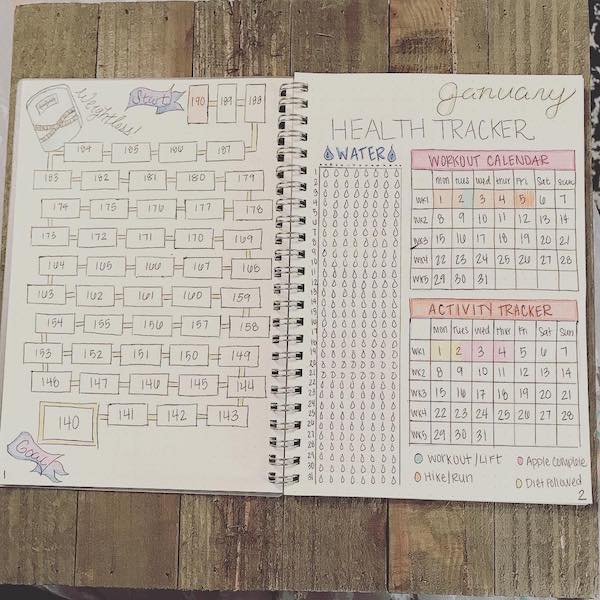 Weightless!
Start 190 189 188
184 185 186 187
183 182 181 180 179
174 175 176 177 178
173 172 171 170 169
164 165 166 167 168
163 162 161 160 159
154 155 156 157 158
153 152 151 150 149
148 147 146 145 144
140 141 142 143
Goal!
1
January
HEALTH TRACKER
WATER
1
2
3
4
5
6
7
8
9
10
11
12
13
14
15
16
17
18
19
20
21
22
23
24
25
26
27
28
29
30
31
WORKOUT CALENDAR
Mon Tues Wed Thur Fri Sat Sun
WK1 1 2 3 4 5 6 7
WK2 8 9 10 11 12 13 14
WK3 15 16 17 18 19 20 21
WK4 22 23 24 25 26 27 28
WK5 29 30 31
ACTIVITY TRACKER
Mon Tues Wed Thur Fri Sat Sun
WK1 1 2 3 4 5 6 7
WK2 8 9 10 11 12 13 14
WK3 15 16 17 18 19 20 21
WK4 22 23 24 25 26 27 28
WK5 29 30 31
Workout/Lift Apple Complete
Hike/Run Diet Followed
2